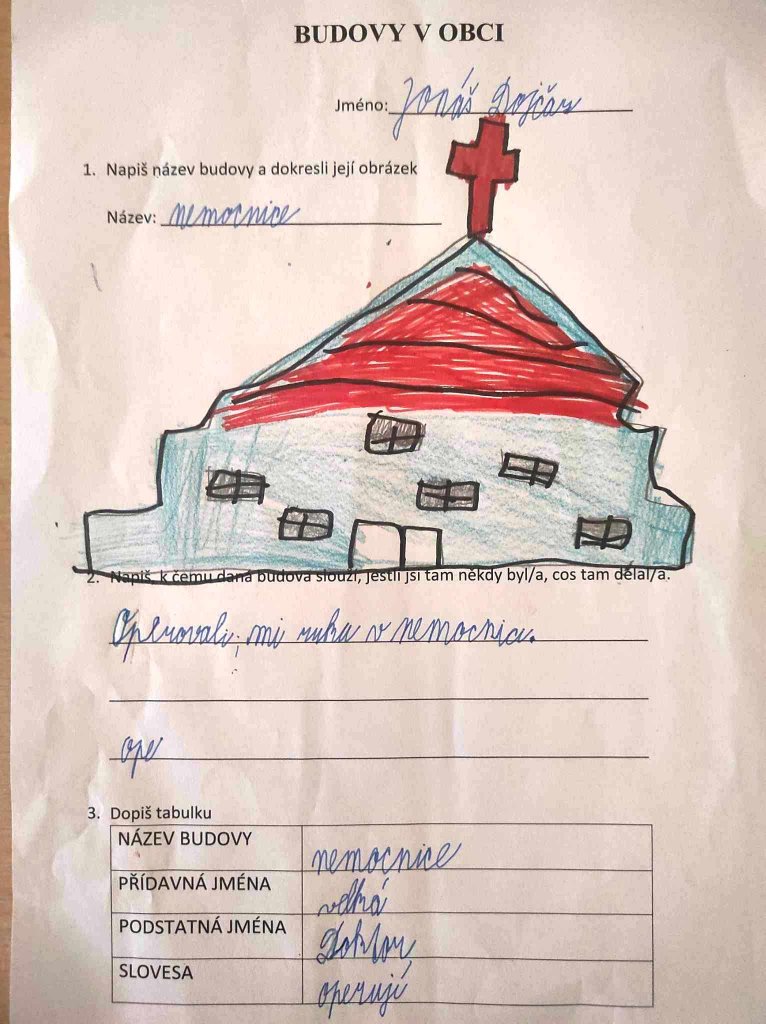 BUDOVY V OBCI
Jméno: Jonáš Dojčár
1. Napiš název budovy a dokresli její obrázek
Název: nemocnice
2. Napiš, k čemu daná budova slouží, jestli jsi tam někdy byl/a, cos tam dělal/a.
Operovali, mi ruku v nemocnici.
ope
3. Dopiš tabulku
NÁZEV BUDOVY nemocnice
PŘÍDAVNÁ JMÉNA velká
PODSTATNÁ JMÉNA Doktor
SLOVESA operují